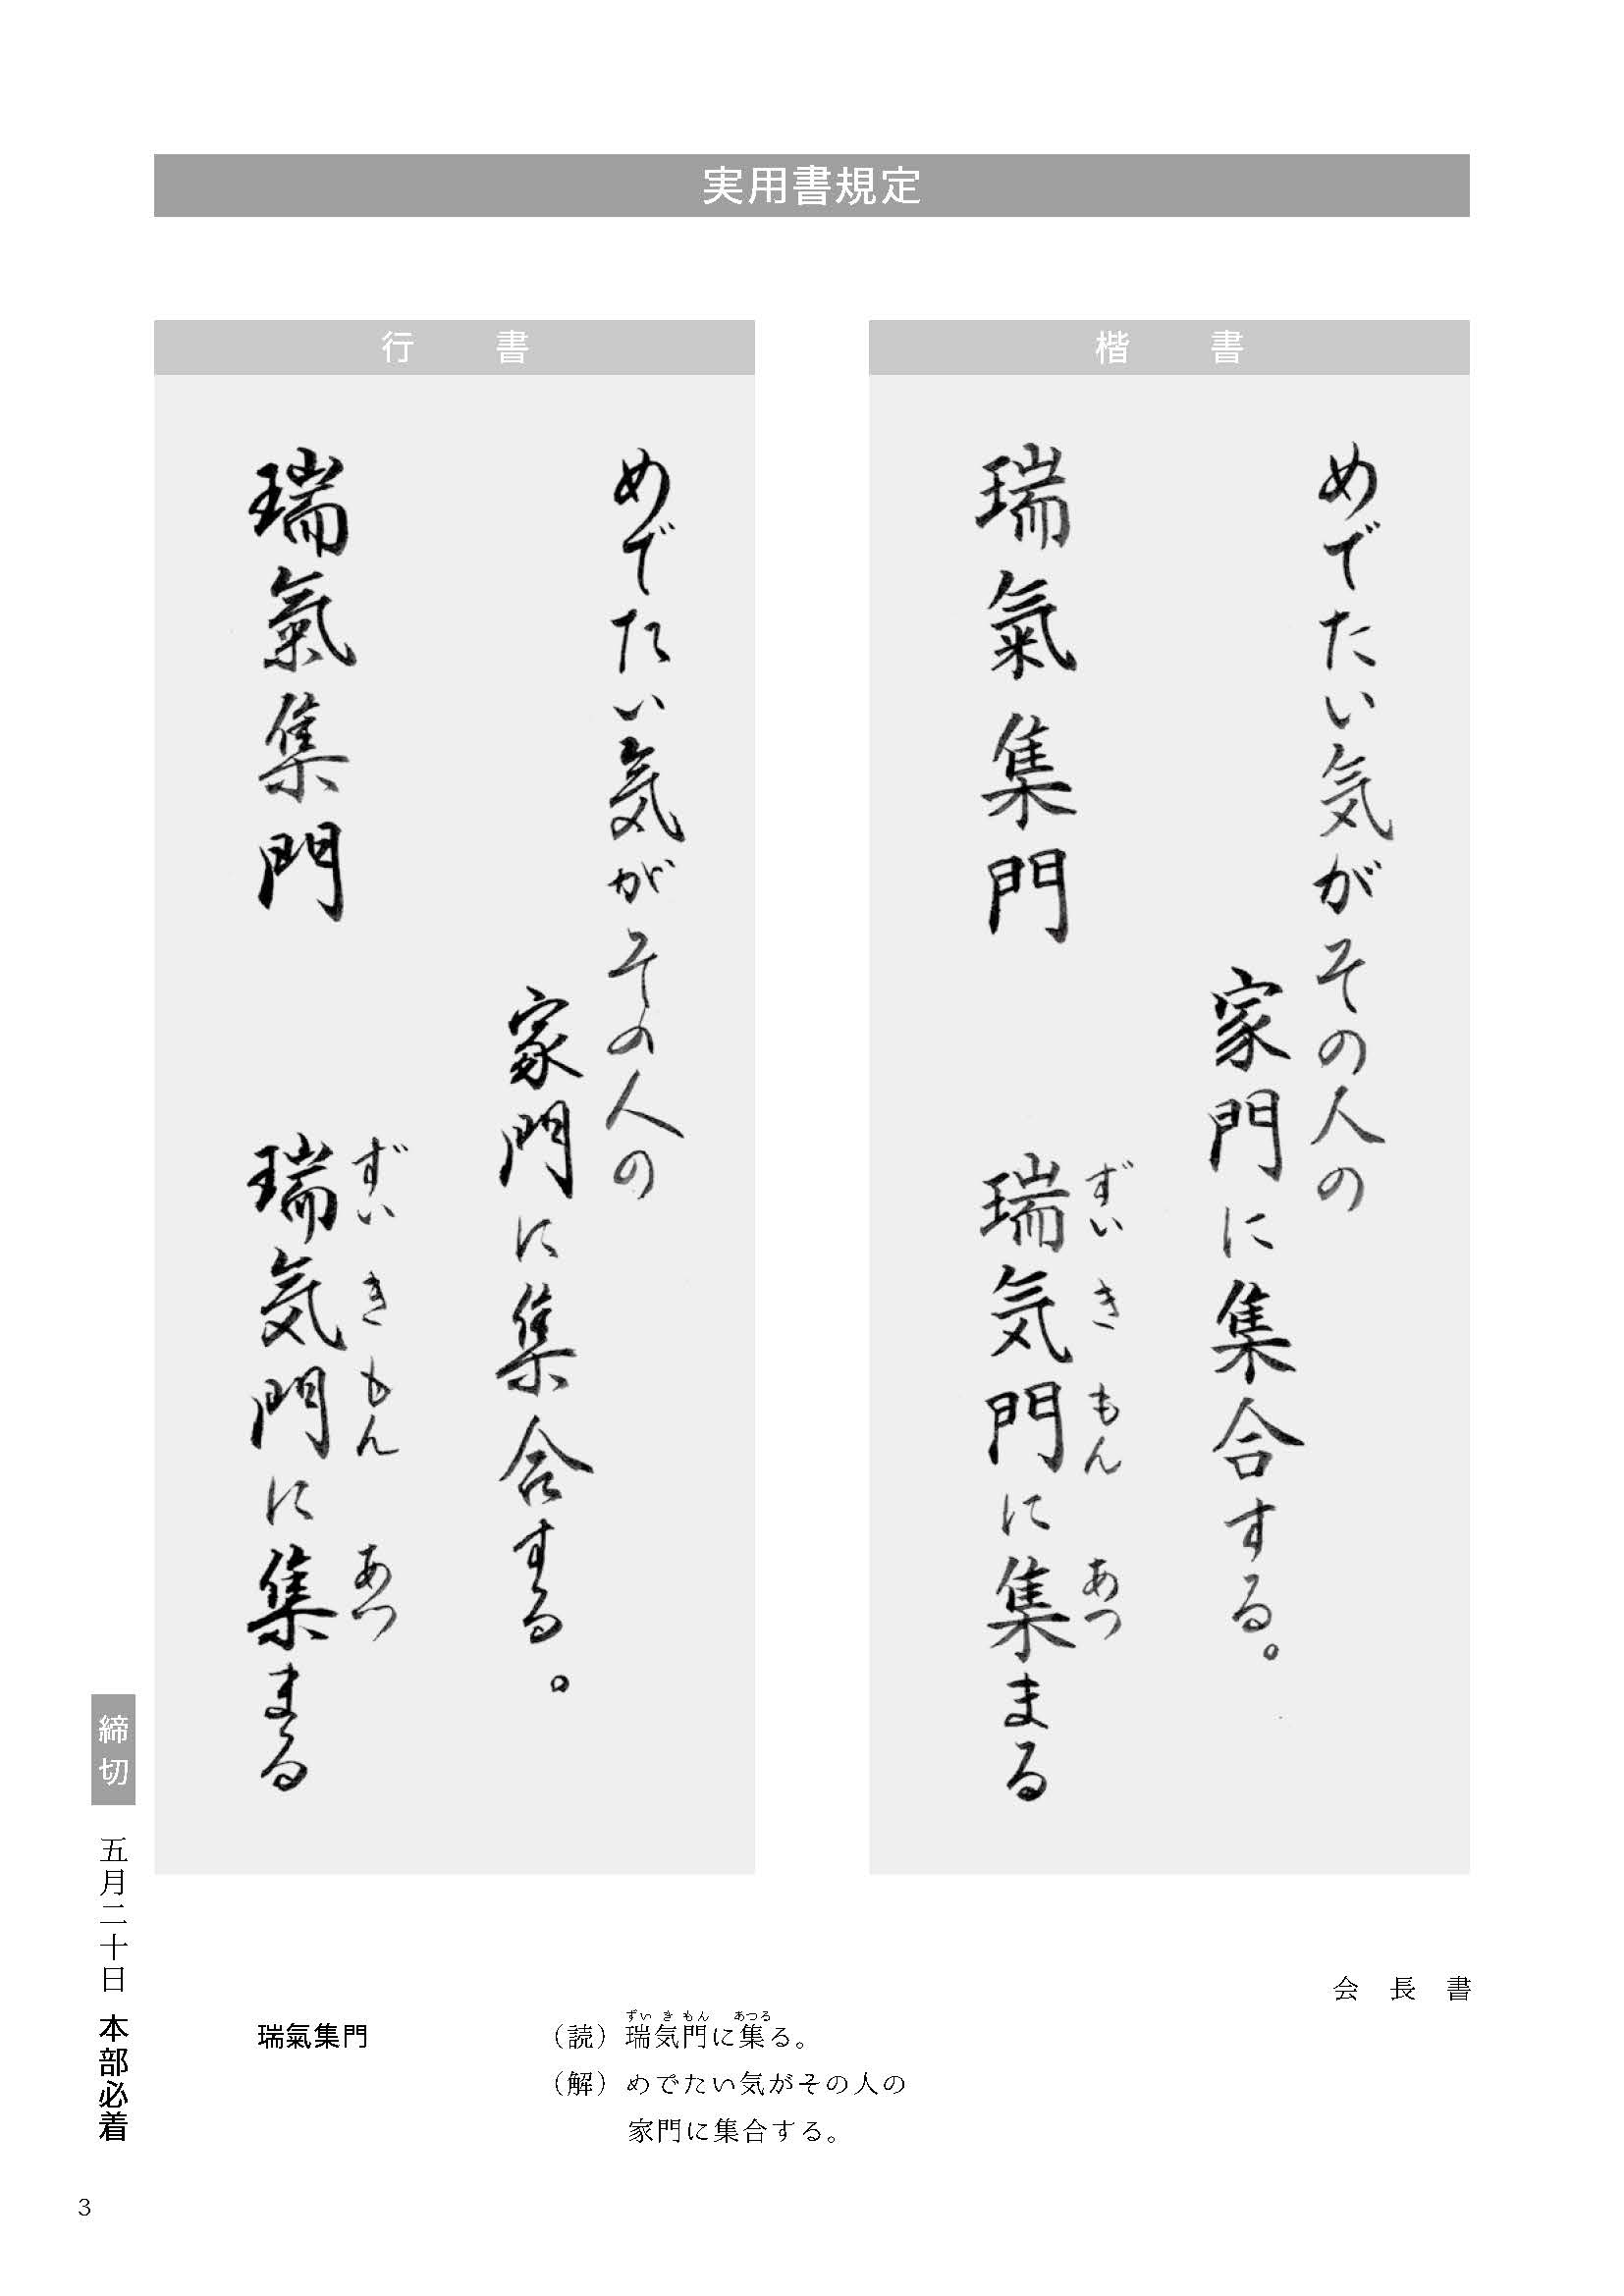 実用書規定
楷書
めでたい気がその人の
家門に集合する。
瑞氣集門
ずいきもんあつ
瑞気門に集まる
行書
めでたい気がその人の
家門に集合する。
瑞氣集門
ずいきもんあつ
瑞気門に集まる
会長書
瑞氣集門
ずいきもんあつる
（読）瑞気門に集る。
（解）めでたい気がその人の
家門に集合する。
締切
五月二十日 本部必着
3